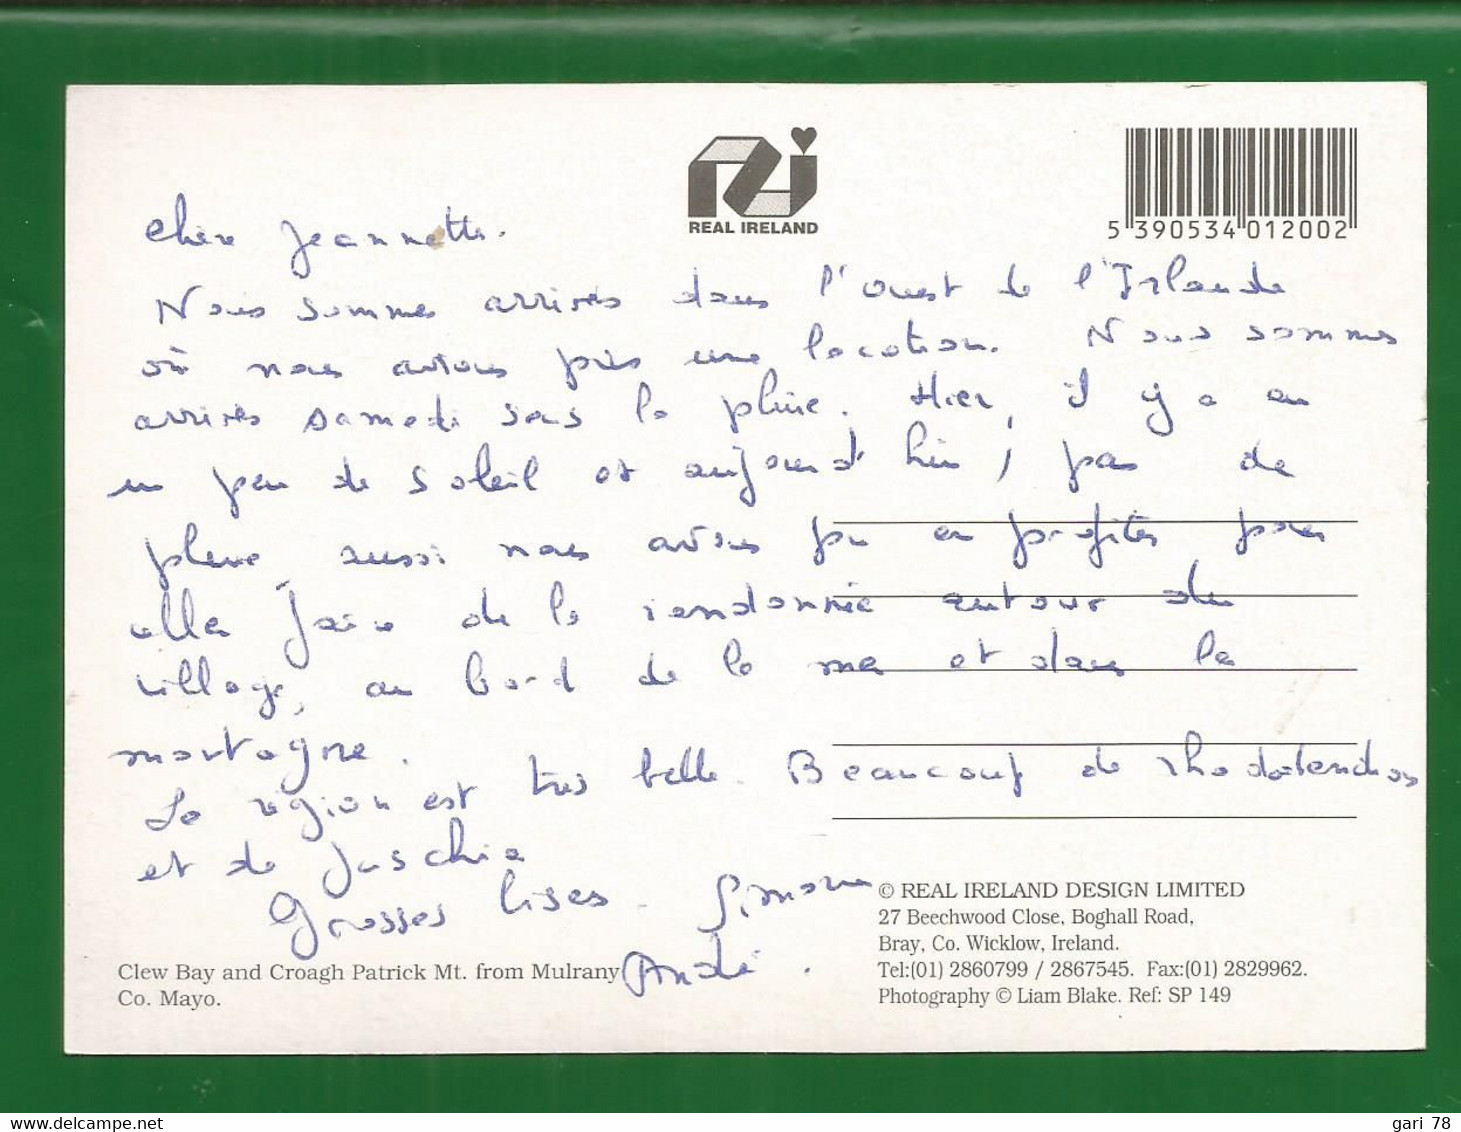 REAL IRELAND
5 390534 012002
Chère Jeannette.
Nous sommes arrivés dans l'ouest de l'Irlande
où nous avons pris une location. Nous sommes
arrivés samedi sous la pluie. Hier, il y a eu
un peu de soleil et aujourd'hui, pas de
pluie, aussi nous avons pu en profiter pour
aller faire de la randonnée autour du
village, au bord de la mer et dans la
montagne.
La région est très belle. Beaucoup de rhododendros
et de fuschia
Grosses bises. Simone
André.
Clew Bay and Croagh Patrick Mt. from Mulrany
Co. Mayo.
© REAL IRELAND DESIGN LIMITED
27 Beechwood Close, Boghall Road,
Bray, Co. Wicklow, Ireland.
Tel:(01) 2860799 / 2867545. Fax:(01) 2829962.
Photography © Liam Blake. Ref: SP 149
www.delcampe.net
gari 78